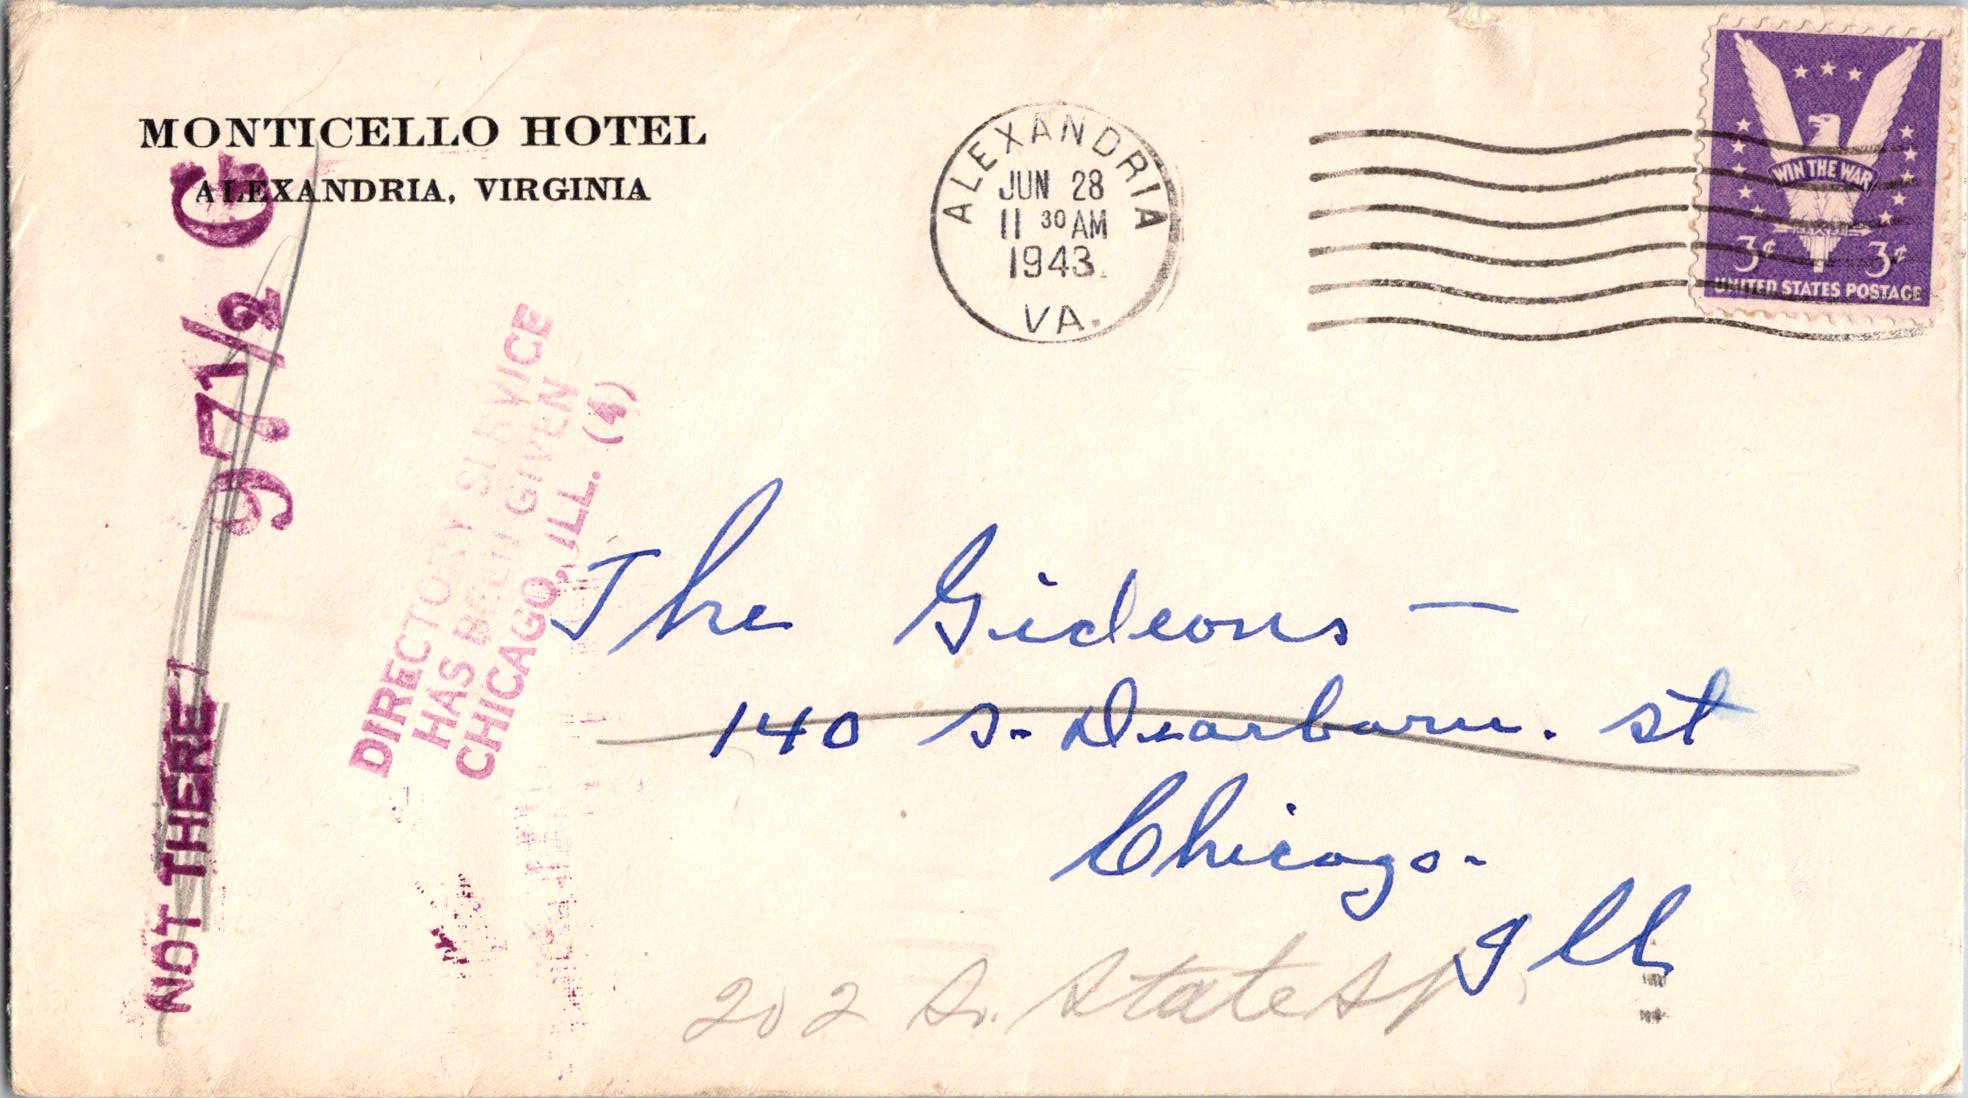 MONTICELLO HOTEL
ALEXANDRIA, VIRGINIA
ALEXANDRIA
JUN 28
11 30 AM
1943
VA.
WIN THE WAR
3¢ 3¢
UNITED STATES POSTAGE
97 1/2 G
NOT THERE
DIRECTORY SERVICE
HAS BEEN GIVEN
CHICAGO, ILL. (4)
The Gideons —
140 S. Dearborn. St
Chicago-
Ill
202 So. State St